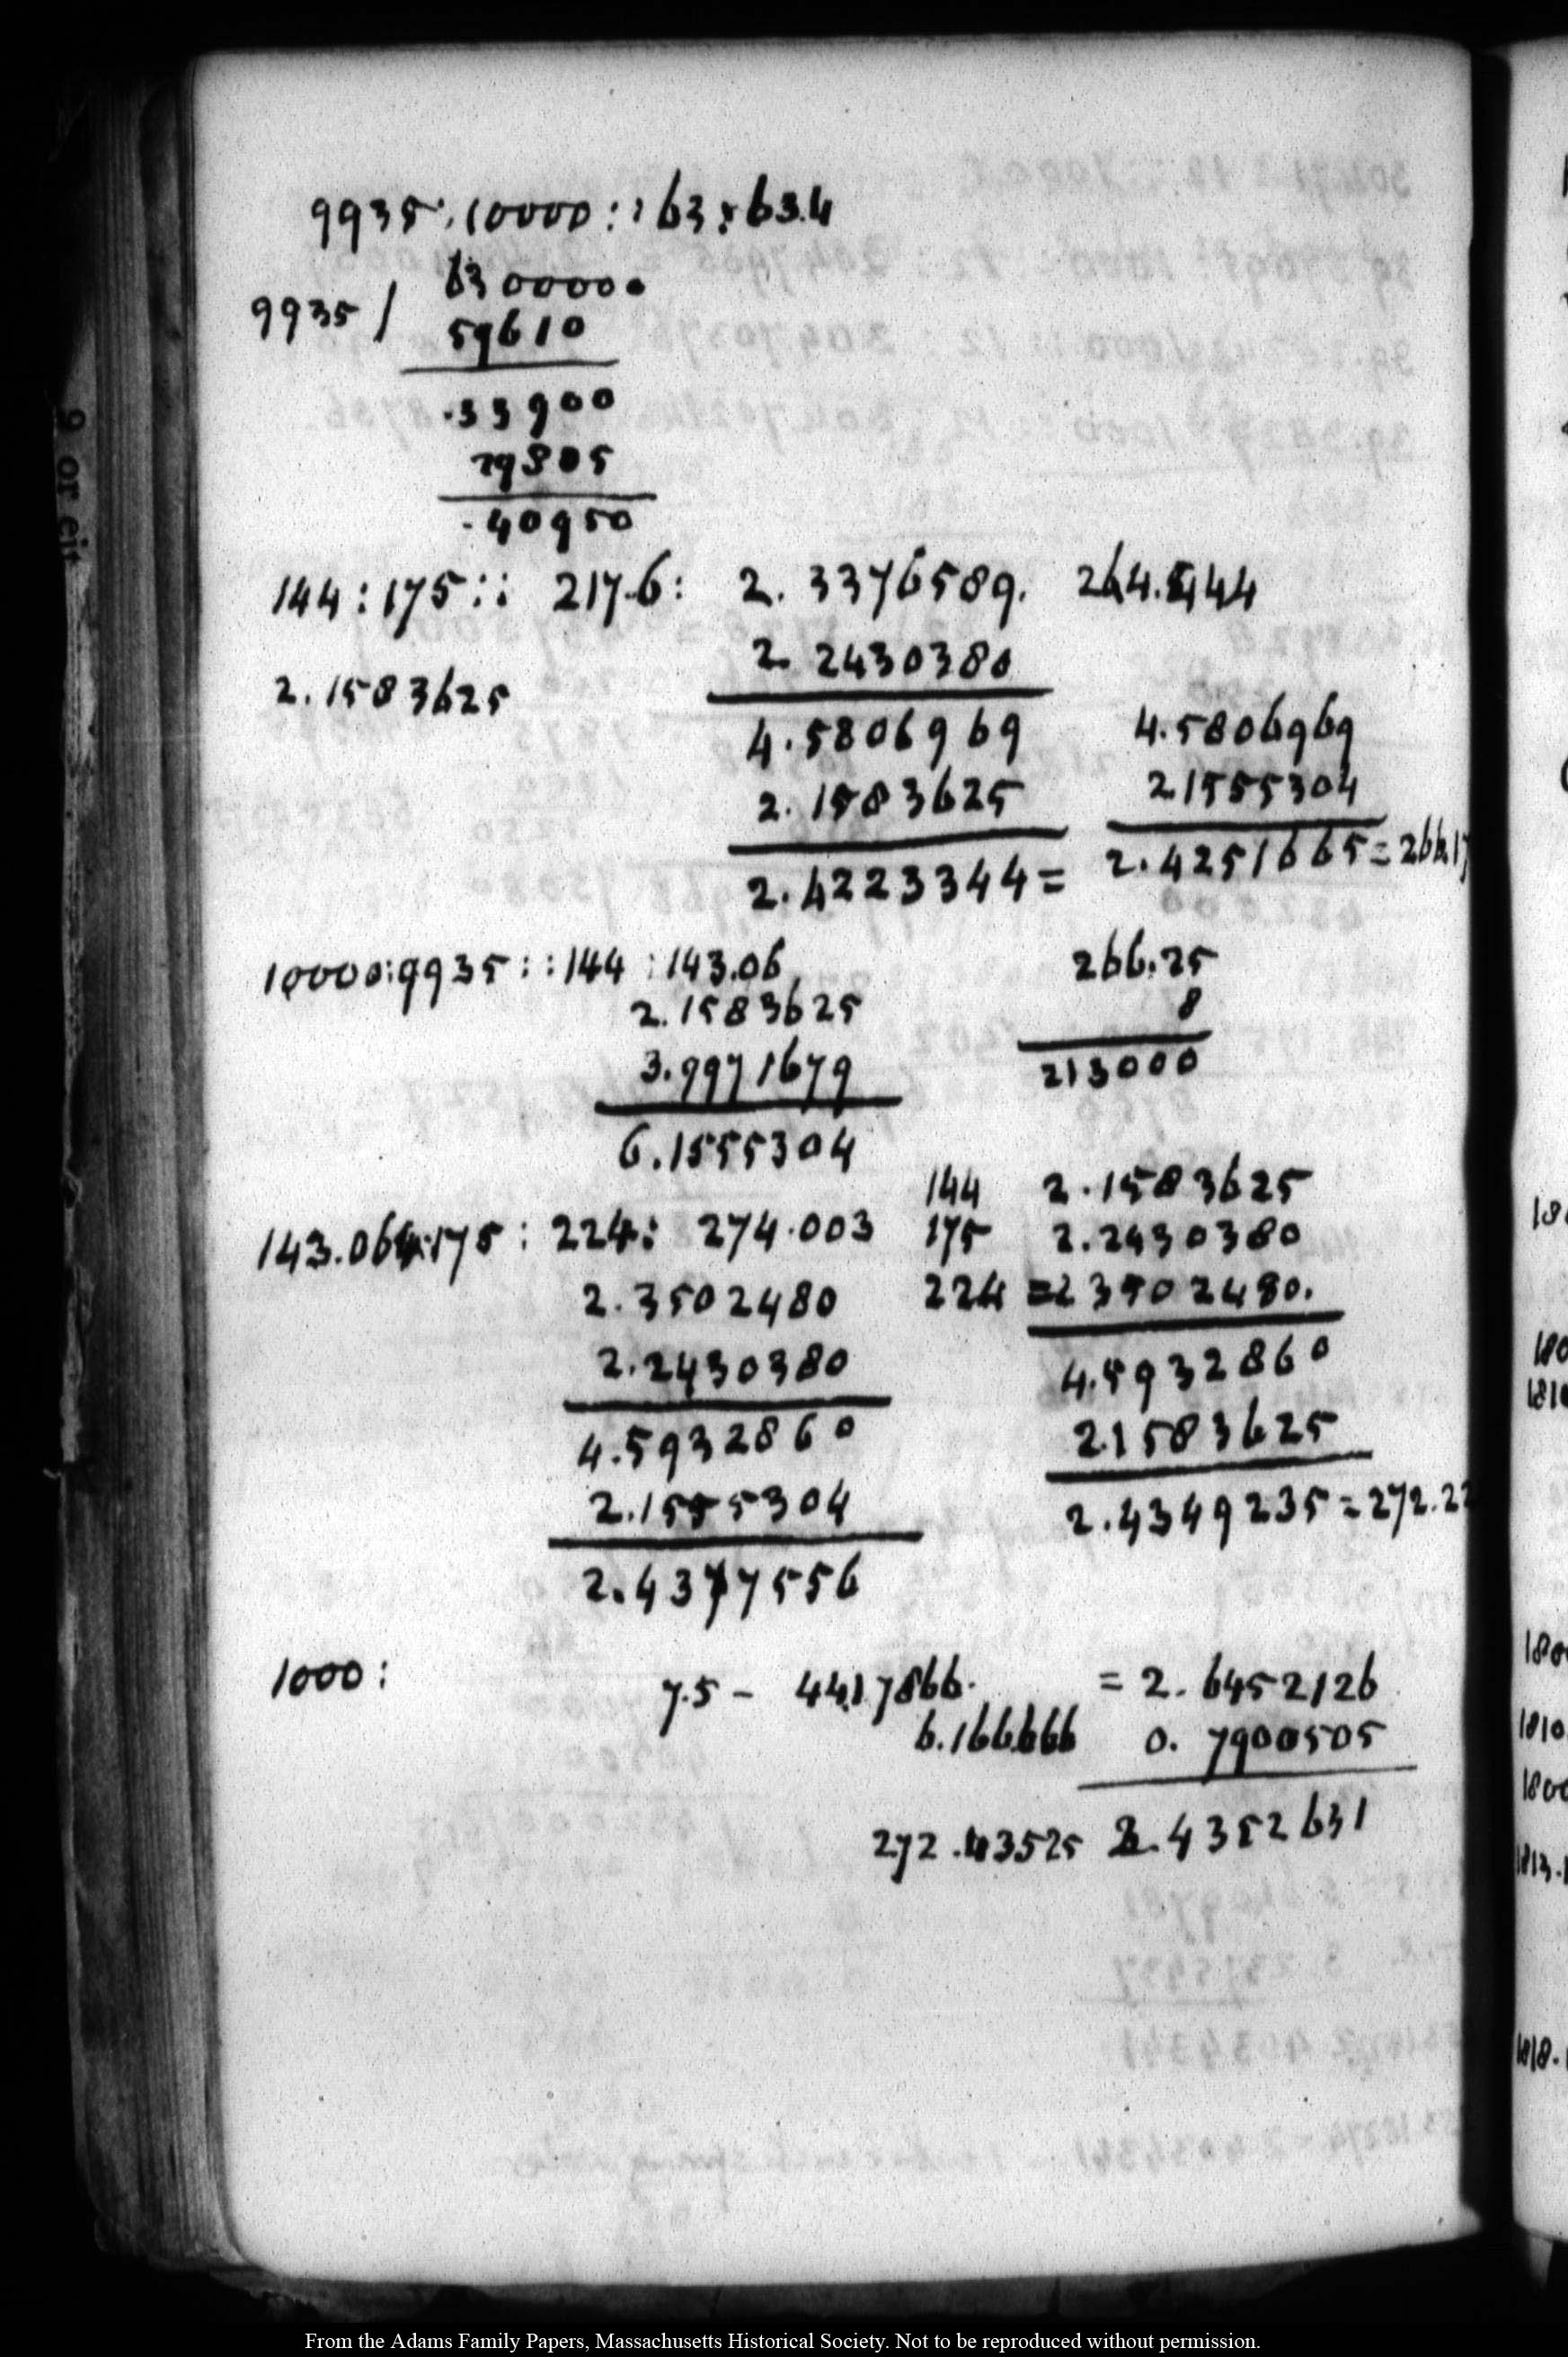 9935:10000::63:63.4
630000.
9935/
59610
.33900
29805
.40950
144:175:: 217.6: 2.3376589. 264.444
2.2430380
2.1583625
4.5806969 4.5806969
2.1583625 2.1555304
2.4223344= 2.4251665=266.17
10000:9935::144:143.06 266.25
2.1583625 8
3.9971679 213000
6.1555304
144 2.1583625
143.064:175:224: 274.003 175 2.2430380
2.3502480 224=2.3502480.
2.2430380 4.5932860
4.5932860 2.1583625
2.1555304 2.4349235=272.22
2.4377556
1000: 7.5- 441.7866. =2.6452126
6.166666 0.7900505
272.43525 2.4352631
From the Adams Family Papers, Massachusetts Historical Society. Not to be reproduced without permission.